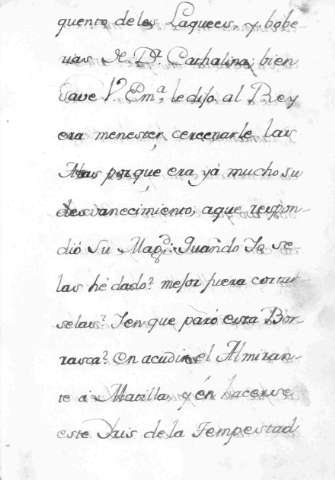 quento de les Laquecs, y bobe
rias de D.ª Cathalina; bien
save V.ª Em.ª, le dijo al Rey
era menester cercenarle las
Alas porque era yá mucho su
desvanecimiento, a que respon
dió Su Mag.d: Quando Io se
las hé dado? mejor fuera cortar
selas? I en que paró esta Bor
rasca? En acudir el Almiran
te á Matilla, y én hacerse
este Iris de la Tempestad